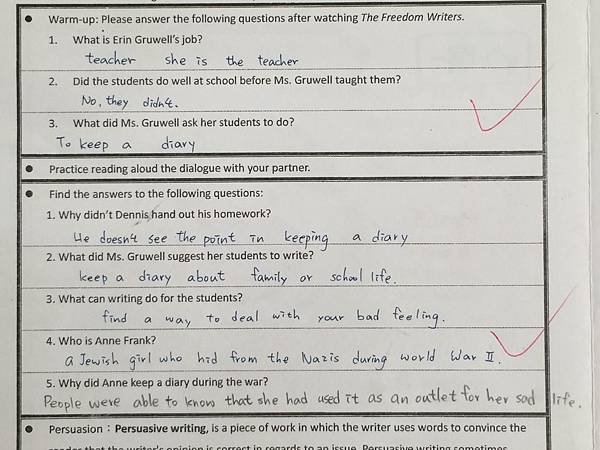 ● Warm-up: Please answer the following questions after watching The Freedom Writers.
1. What is Erin Gruwell's job?
teacher she is the teacher
2. Did the students do well at school before Ms. Gruwell taught them?
No, they didn't.
3. What did Ms. Gruwell ask her students to do?
To keep a diary
● Practice reading aloud the dialogue with your partner.
● Find the answers to the following questions:
1. Why didn't Dennis hand out his homework?
He doesn't see the point in keeping a diary
2. What did Ms. Gruwell suggest her students to write?
keep a diary about family or school life.
3. What can writing do for the students?
find a way to deal with your bad feeling.
4. Who is Anne Frank?
a Jewish girl who hid from the Nazis during world War II.
5. Why did Anne keep a diary during the war?
People were able to know that she had used it as an outlet for her sad life.
● Persuasion：Persuasive writing, is a piece of work in which the writer uses words to convince the
reader that the writer's opinion is correct in regards to an issue. Persuasive writing sometimes